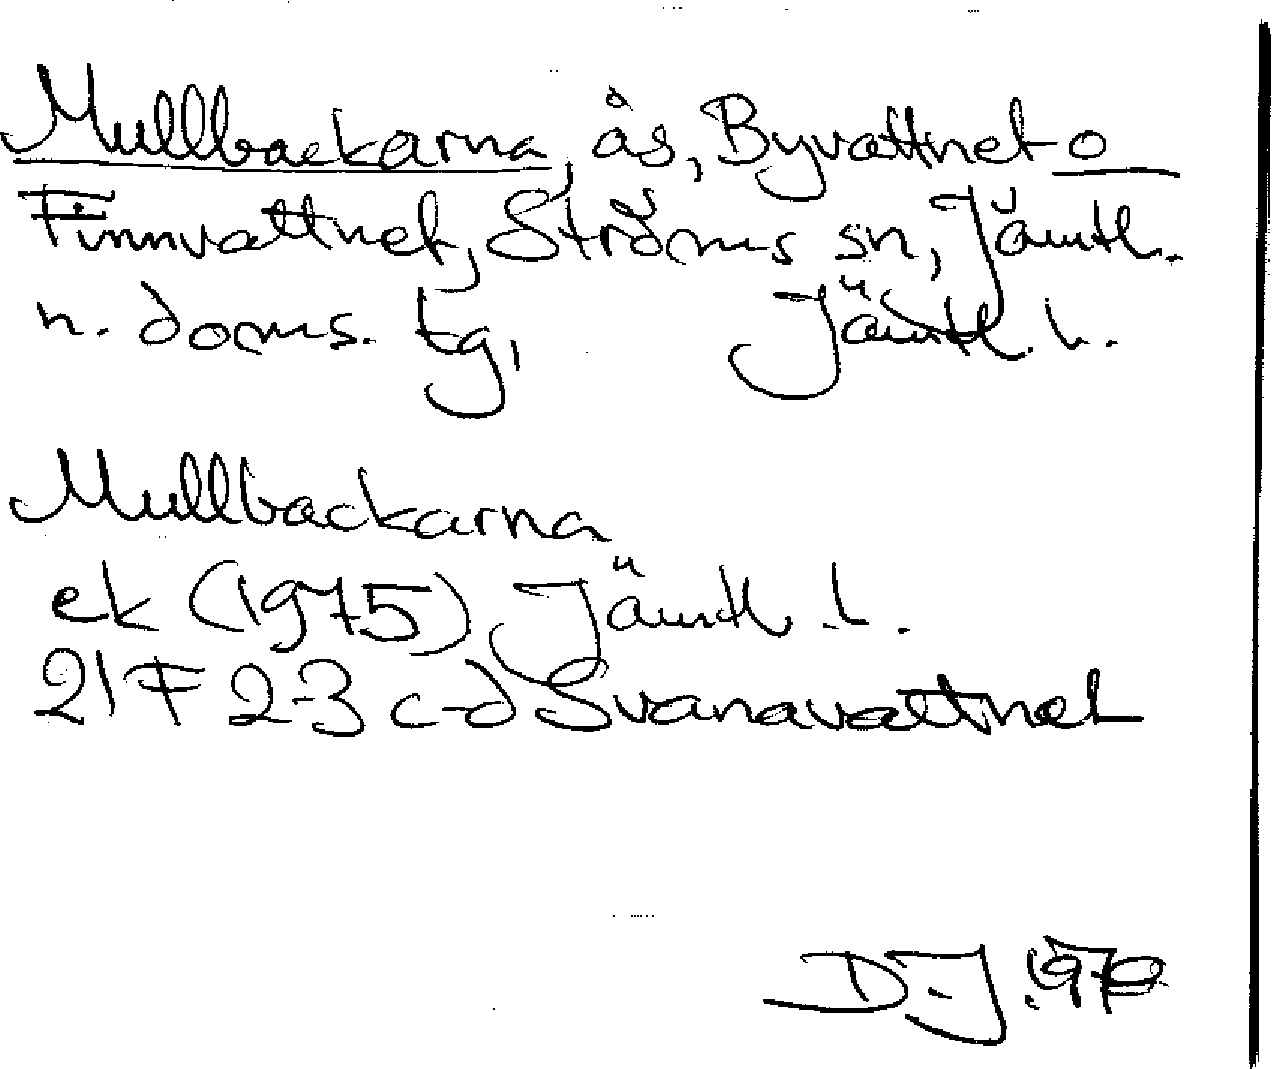 Mullbackarna, ås, Byvattnet o
Finnvattnet, Ströms sn, Jämtl.
n. doms. tg, Jämtl. l.
Mullbackarna
ek (1975) Jämtl. l.
21 F 2-3 c-d Svanavattnet
D-J